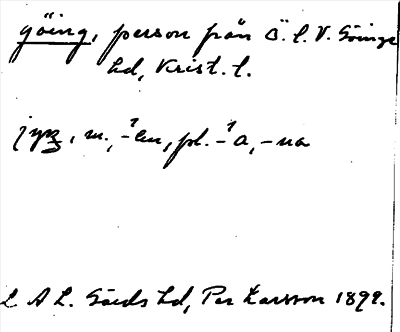 göing, person från Ö. l. V. Göinge
hd, Krist. l.
jyŋ, m., -en, pl. -a, -na
L A L. Gärds hd, Per Larsson 1899.